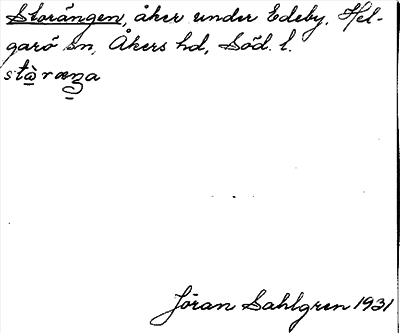 Storängen, åker under Edeby, Hel-
garö sn, Åkers hd, Söd. l.
stàræŋa
Jöran Sahlgren 1931